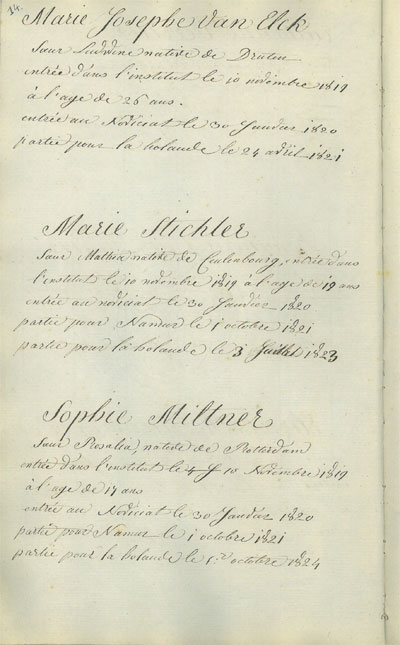 14.
Marie Josephe van Elck
Sœur Ludwine native de Druten
entrée dans l'institut le 10 novembre 1819
à l'age de 26 ans.
entrée au Noviciat le 30 Janvier 1820
partie pour la holande le 24 avril 1821
Marie Stichler
Sœur Mathia native de Culenbourg, entrée dans
l'institut le 10 novembre 1819 à l'age de 19 ans
entrée au noviciat le 30 Janvier 1820
partie pour Namur le 1 octobre 1821
partie pour la holande le 3 Juillet 1823
Sophie Miltner
Sœur Rosalia, native de Rotterdam
entrée dans l'institut le 10 Novembre 1819
à l'age de 17 ans
entrée au Noviciat le 30 Janvier 1820
partie pour Namur le 1 octobre 1821
partie pour la holande le octobre 1824